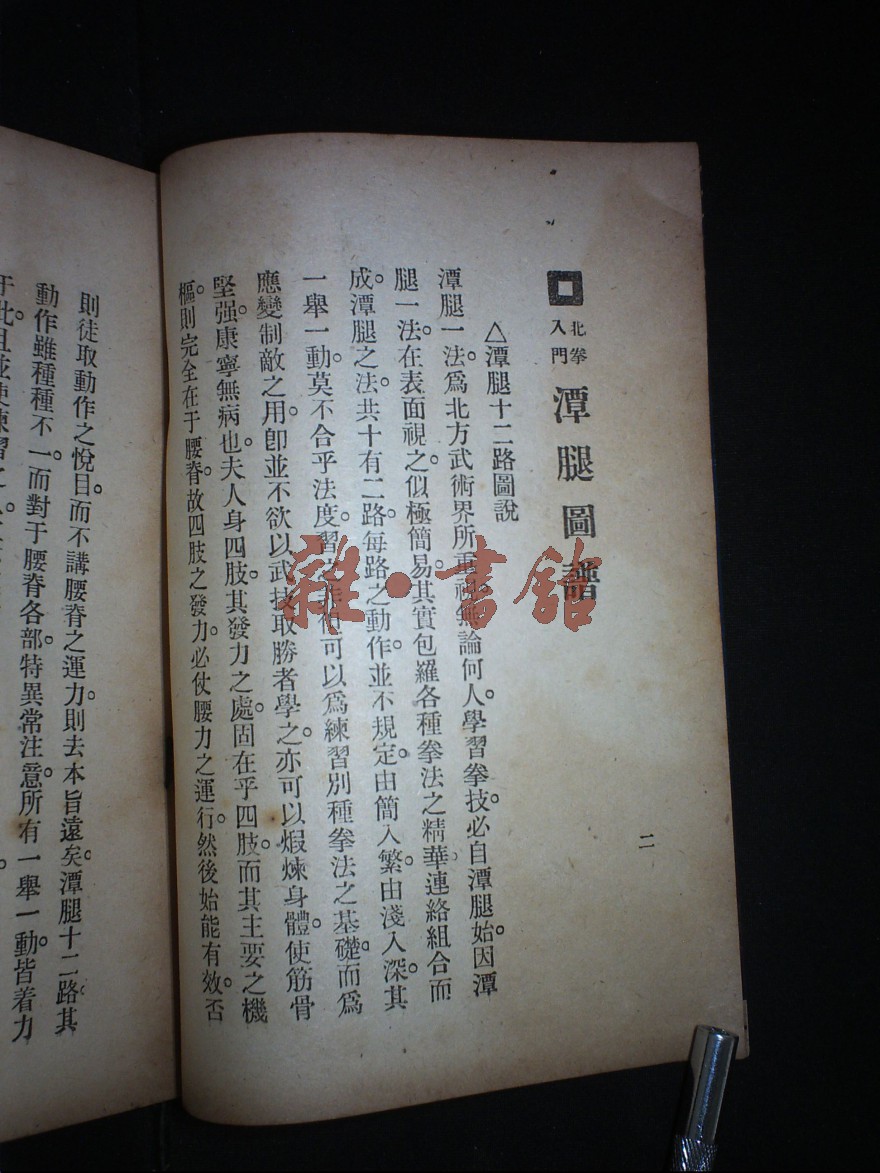 北拳入門 潭腿圖譜
二
△潭腿十二路圖說
潭腿一法。爲北方武術界所重視。無論何人。學習拳技。必自潭腿始。因潭
腿一法。在表面視之。似極簡易。其實包羅各種拳法之精華。連絡組合而
成。潭腿之法。共十有二路。每路之動作。並不規定。由簡入繁。由淺入深。其
一舉一動。莫不合乎法度。習之非但可以爲練習別種拳法之基礎。而爲
應變制敵之用。卽並不欲以武技取勝者。學之亦可以煅煉身體。使筋骨
堅强。康寧無病也。夫人身四肢。其發力之處。固在乎四肢。而其主要之機
樞。則完全在于腰脊。故四肢之發力。必仗腰力之運行。然後始能有效。否
則徒取動作之悅目。而不講腰脊之運力。則去本旨遠矣。潭腿十二路。其
動作雖種種不一。而對于腰脊各部。特異常注意。所有一舉一動。皆着力
于此。且並使練習之
雜·書館